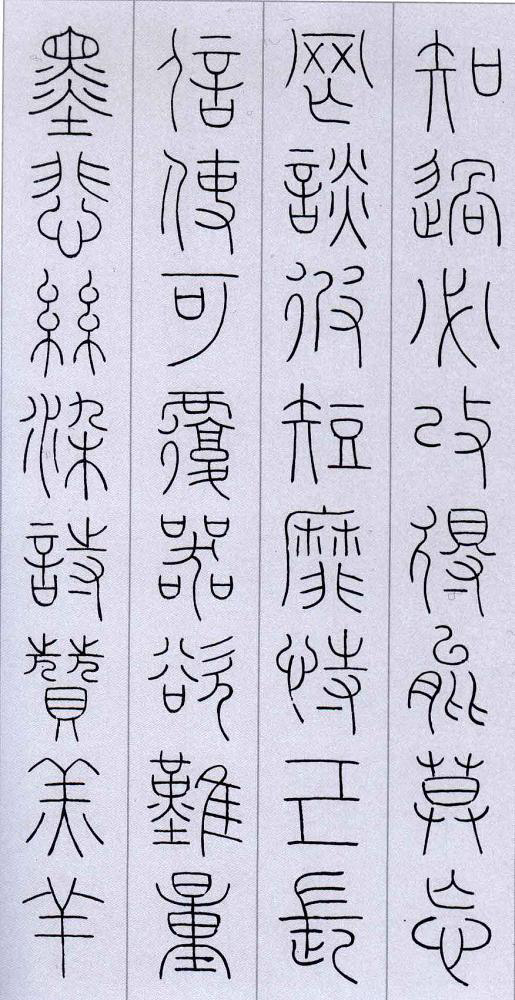 知過必改得能莫忘
罔談彼短靡恃己長
信使可覆器欲難量
墨悲絲染詩贊羔羊